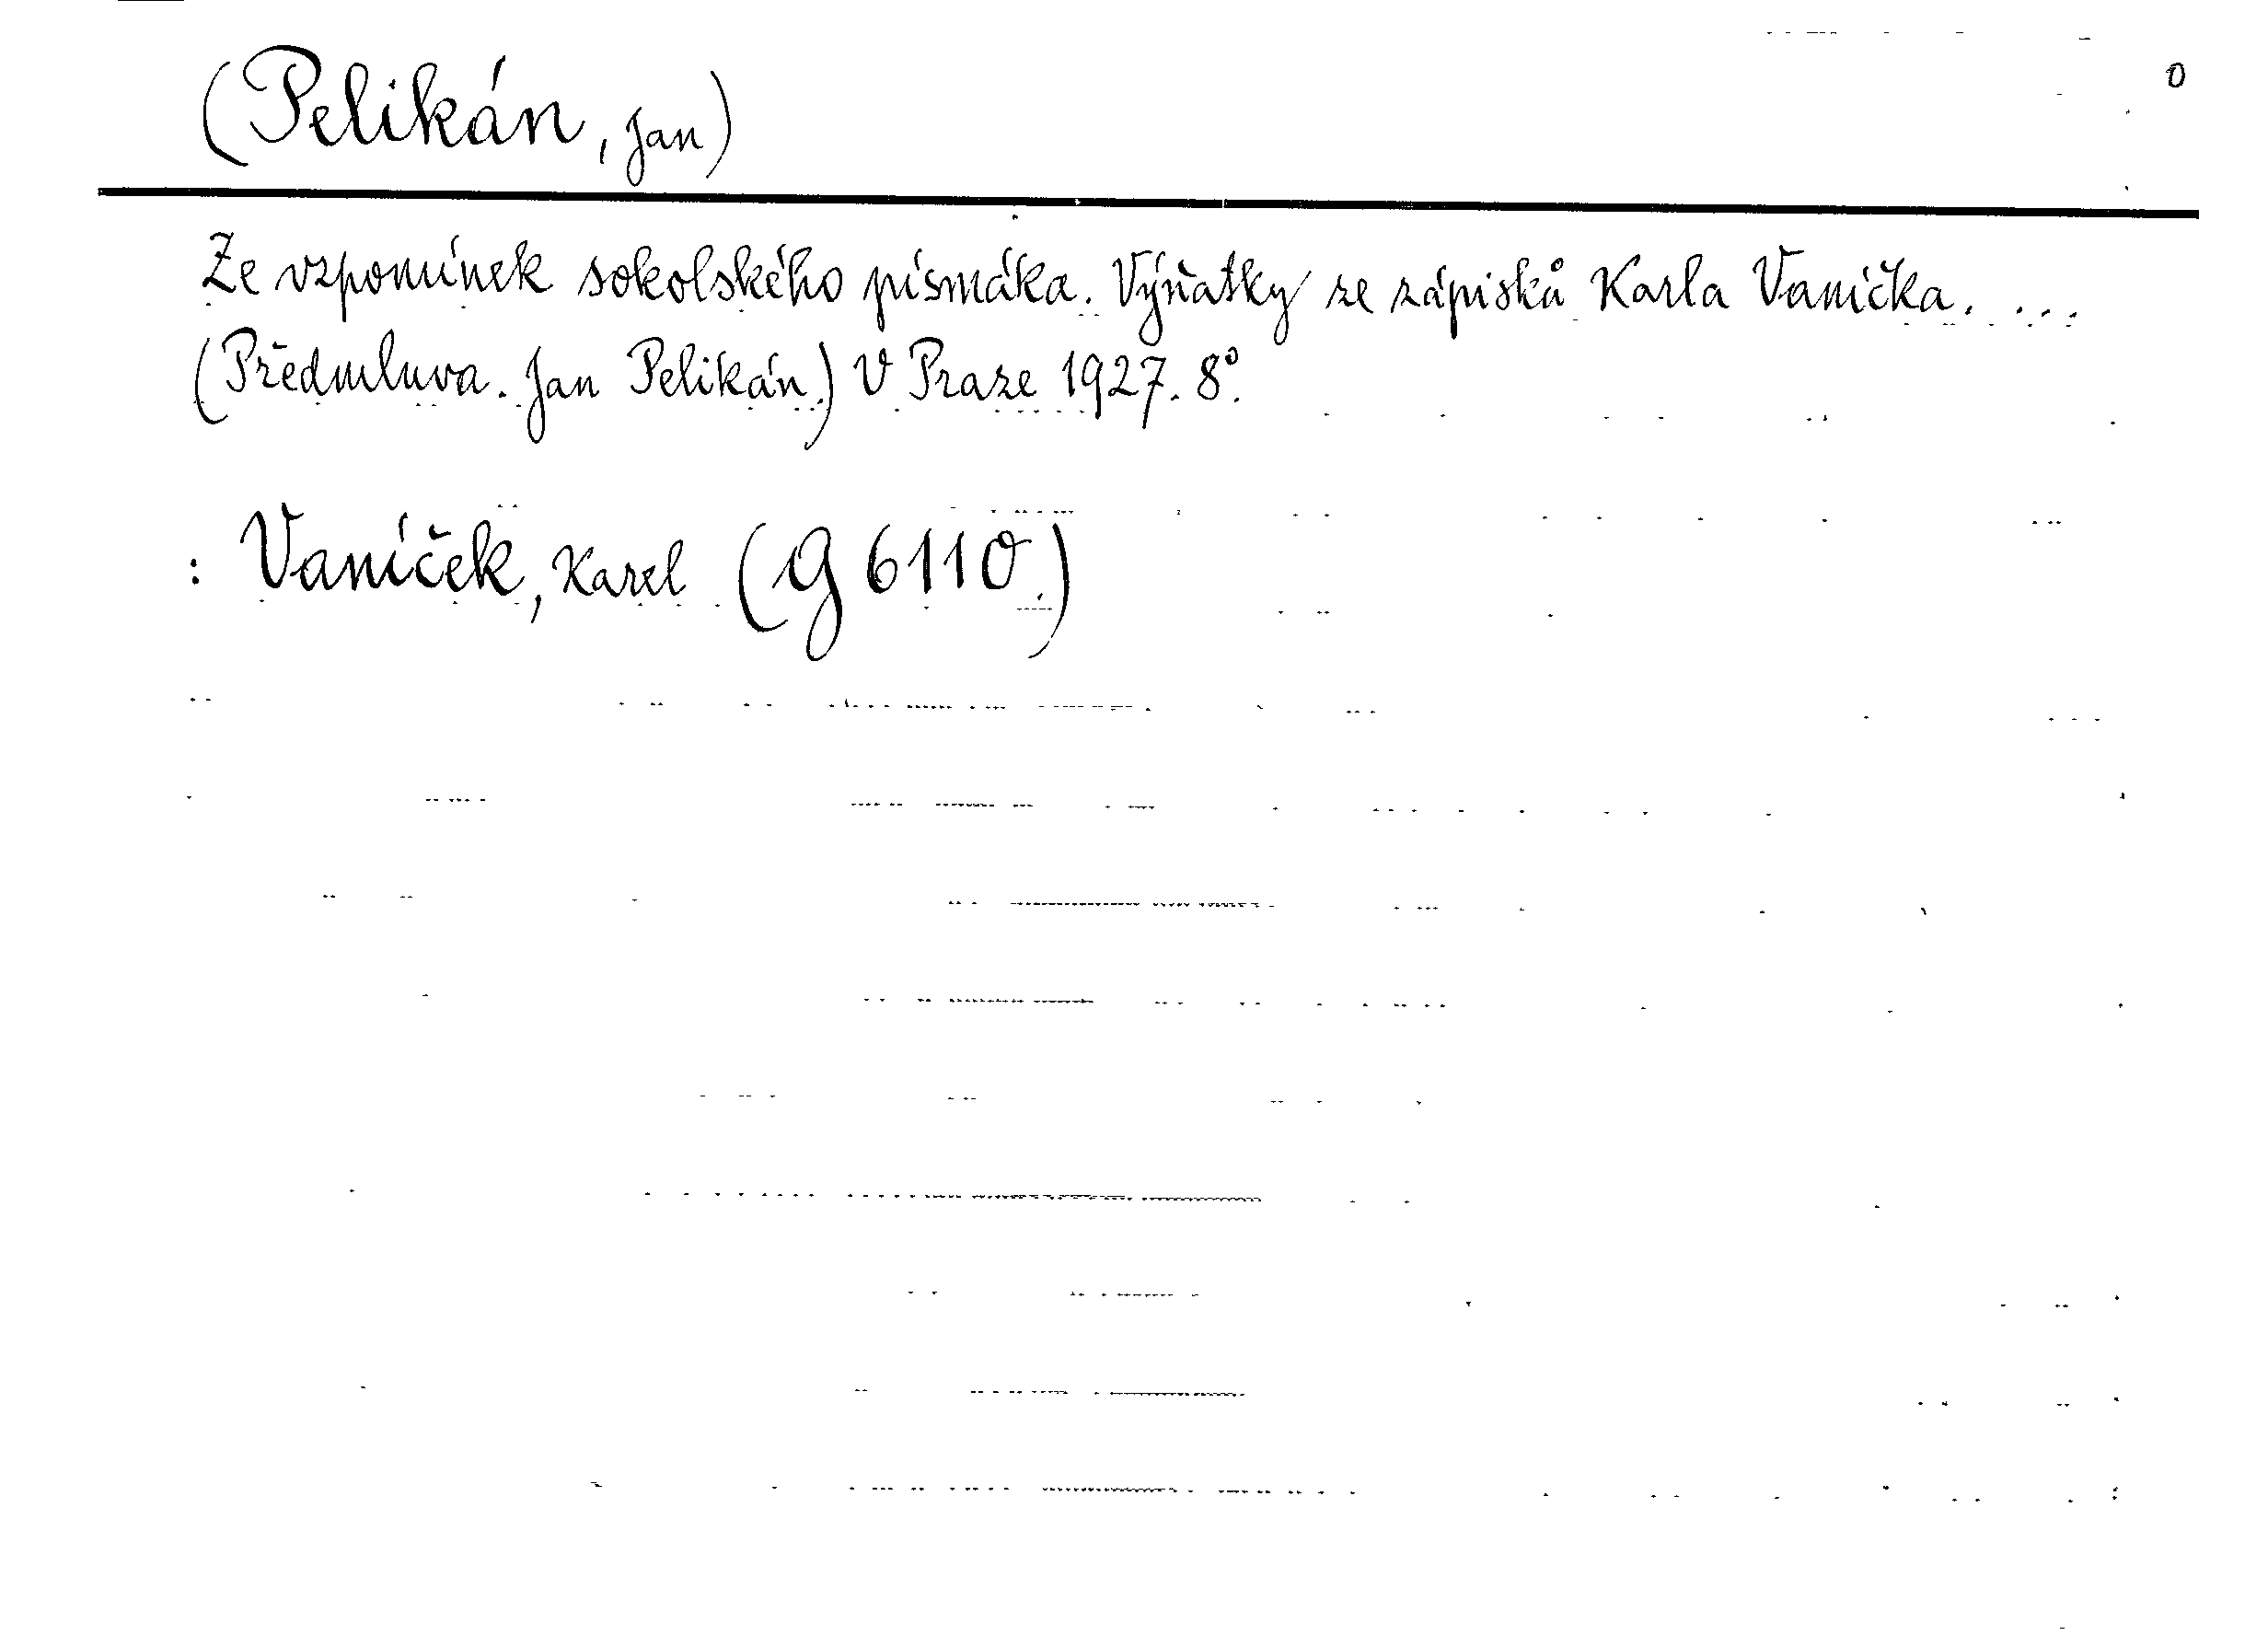 0
(Pelikán, Jan)
Ze vzpomínek sokolského písmáka. Výňatky ze zápisků Karla Vaníčka. ....
(Předmluva. Jan Pelikán.) V Praze 1927. 8°.
: Vaníček, Karel (G 6110.)